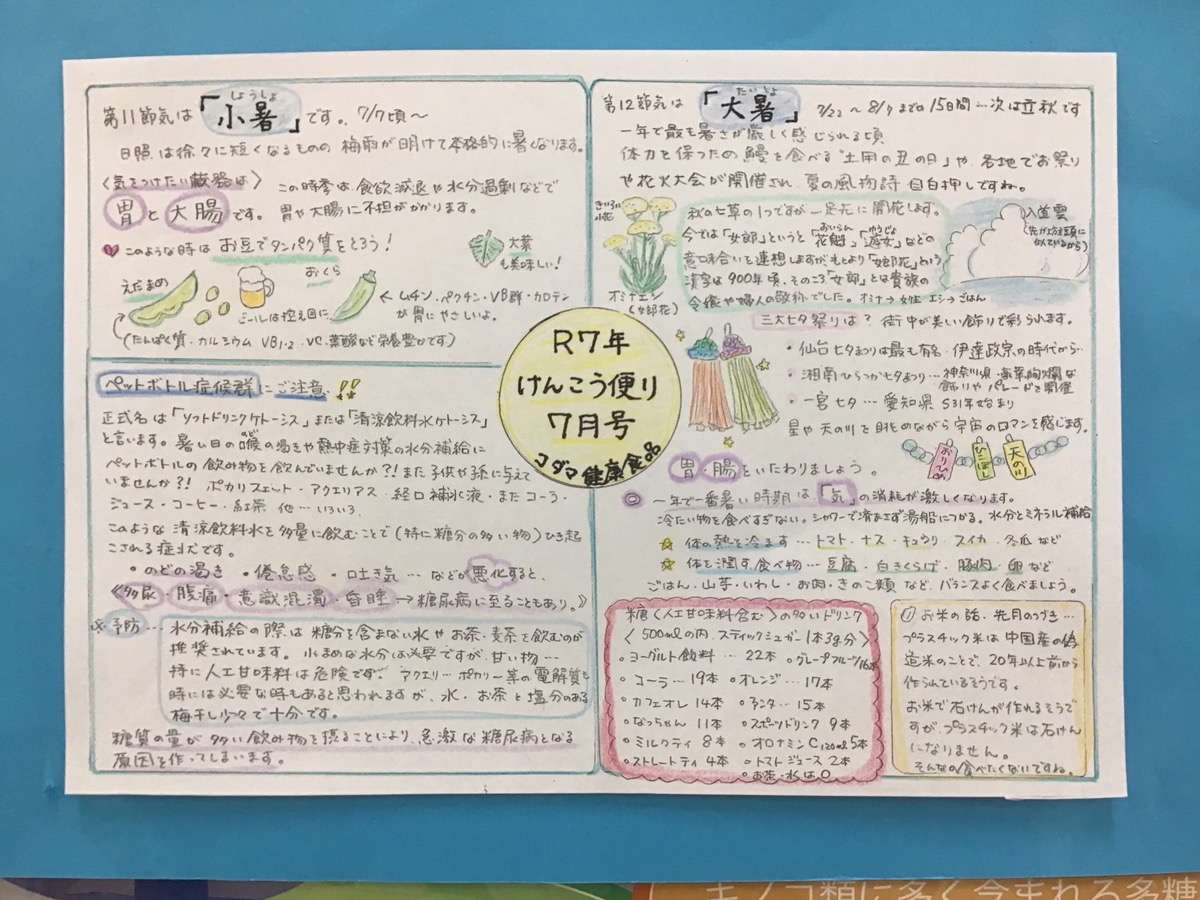 しょうしょ
第11節気は「小暑」です。7/7頃～
日照は徐々に短くなるものの 梅雨が明けて本格的に暑くなります。
〈気をつけたい臓器は〉 この時季は食欲減退や水分過剰などで
胃と大腸です。胃や大腸に不担がかかります。
このような時は お豆でタンパク質をとろう！
大葉
も美味しい！
えだまめ
おくら
ビールは控え目に
← ムチン・ペクチン・VB群・カロテン
が胃にやさしいよ。
(たんぱく質・カルシウム VB1・2・VC・葉酸など栄養豊かです)
ペットボトル症候群にご注意!!
正式名は「ソフトドリンクケトーシス」または「清涼飲料水ケトーシス」
と言います。暑い日の喉の渇きや熱中症対策の水分補給に
ペットボトルの飲み物を飲んでいませんか?! また子供や孫に与えて
いませんか?! ポカリスエット・アクエリアス・経口補水液・またコーラ・
ジュース・コーヒー・紅茶 他…いろいろ
このような清涼飲料水を多量に飲むことで(特に糖分の多い物)ひき起
こされる症状です。
・のどの渇き ・倦怠感 ・口吐き気……などが悪化すると、
《多尿・腹痛・意識混濁・昏睡→糖尿病に至ることもあり。》
※予防… 水分補給の際は糖分を含まない水やお茶・麦茶を飲むのが
推奨されています。小まめな水分は必要ですが、甘い物…
特に人工甘味料は危険です、アクエリ…ポカリー等の電解質も
時には必要な時もあると思われますが、水・お茶と塩分のある
梅干し少々で十分です。
糖質の量が多い飲み物を摂ることにより、急激な糖尿病となる
原因を作ってしまいます。
R7年
けんこう便り
7月号
コダマ健康食品
たいしょ
第12節気は「大暑」7/22～8/7までの15日間…次は立秋です
一年で最も暑さが厳しく感じられる頃
体力を保つため鰻を食べる“土用の丑の日”や、各地でお祭り
や花火大会が開催され、夏の風物詩 目白押しですね。
きいろい
小花
オミナエシ
(女郎花)
秋の七草の1つですが一足先に開花します。
おいらん ゆうじょ
今では「女郎」というと「花魁」「遊女」などの
意味合いを連想しますがもとより「女郎花」という
漢字は900年頃、そのころ「女郎」とは貴族の
令嬢や婦人の敬称でした。オミナ→女性 エシ→ごはん
入道雲
(先が坊主頭に
似ているから)
三大七夕祭りは？ 街中が美しい飾りで彩られます。
・仙台七夕まつりは最も有名・伊達政宗の時代から…
・湘南ひらつか七夕まつり…神奈川県・豪華絢爛な
飾りやパレードを開催
・一宮七夕…愛知県 S31年始まり
星や天の川を眺めながら宇宙のロマンを感じます。
おりひめ
ひこぼし
天の川
胃・腸をいたわりましょう。
◎ 一年で一番暑い時期は「気」の消耗が激しくなります。
冷たい物を食べすぎない。シャワーで済まさず湯船につかる。水分とミネラル補給
☆ 体の熱を冷ます…トマト・ナス・キュウリ・スイカ・冬瓜など
☆ 体を潤す食べ物…豆腐・白きくらげ・豚肉・卵など
ごはん・山芋・いわし・お肉・きのこ類など、バランスよく食べましょう。
糖〈人工甘味料含む〉の多いドリンク
〈500mlの内、スティックシュガー1本3g分〉
○ヨーグルト飲料…22本 ○グレープフルーツ16本
○コーラ…19本 ○オレンジ…17本
○カフェオレ14本 ○ファンタ…15本
○なっちゃん 11本 ○スポーツドリンク 9本
○ミルクティ 8本 ○オロナミンC120ml5本
○ストレートティ4本 ○トマトジュース 2本
○お茶・水は0
お米の話・先月のつづき…
プラスチック米は中国産の偽
造米のことで、20年以上前から
作られているそうです。
お米で石けんが作れるそうで
すが、プラスチック米は石けん
になりません。
そんなの食べたくないですね。
キノコ類に多く含まれる多糖